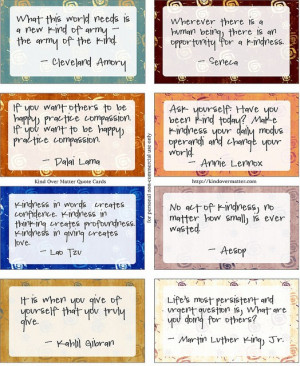 What this world needs is
a new kind of army –
the army of the kind.
– Cleveland Amory
Wherever there is a
human being, there is an
opportunity for a kindness.
– Seneca
If you want others to be
happy, practice compassion.
If you want to be
happy, practice compassion.
– Dalai Lama
Ask yourself: Have you
been kind today? Make
kindness your daily modus
operandi and change your
world.
– Annie Lennox
Kind Over Matter Quote Cards
http://kindovermatter.com
for personal non-commercial use only
Kindness in words creates
confidence. Kindness in
thinking creates profoundness.
Kindness in giving creates
love.
– Lao Tzu
No act of kindness, no
matter how small, is ever
wasted.
– Aesop
It is when you give of
yourself that you truly
give.
– Kahlil Gibran
Life's most persistent and
urgent question is, What are
you doing for others?
– Martin Luther King, Jr.